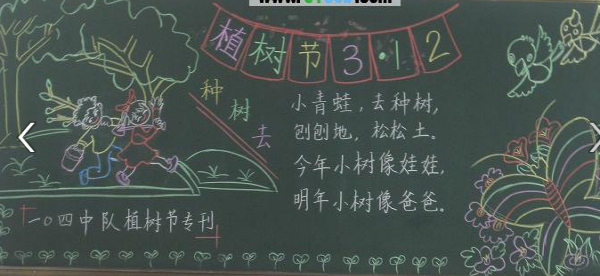 植树节3·12
种树去
小青蛙，去种树，
刨刨地，松松土。
今年小树像娃娃，
明年小树像爸爸。
一〇四中队植树节专刊